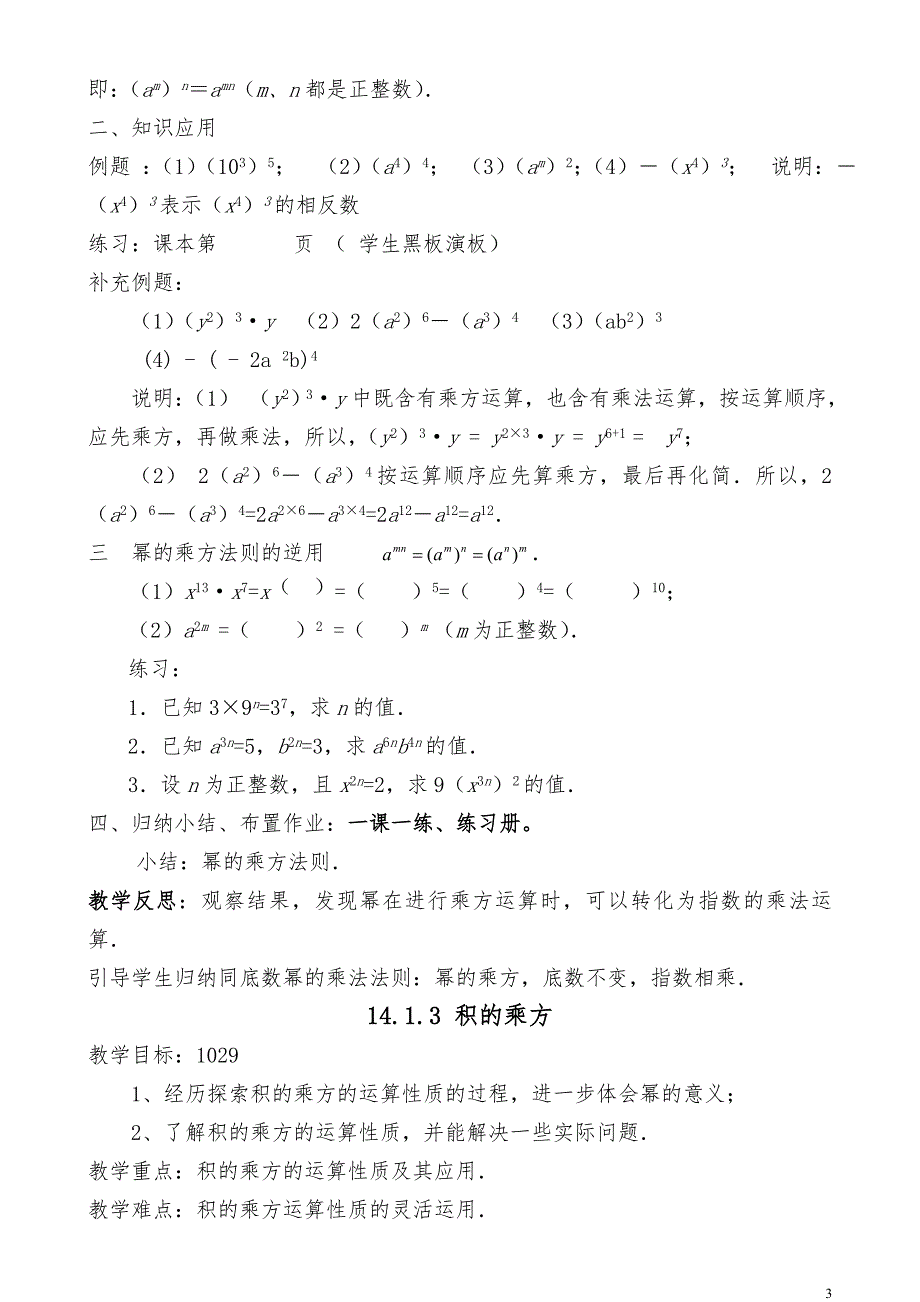 即：（aᵐ）ⁿ＝aᵐⁿ（m、n都是正整数）．
二、知识应用
例题 ：（1）（10³）⁵； （2）（a⁴）⁴； （3）（aᵐ）²；（4）－（x⁴）³； 说明：－
（x⁴）³表示（x⁴）³的相反数
练习：课本第 页 （ 学生黑板演板）
补充例题：
（1）（y²）³·y （2）2（a²）⁶－（a³）⁴ （3）（ab²）³
(4) - ( - 2a ²b)⁴
说明：（1） （y²）³·y中既含有乘方运算，也含有乘法运算，按运算顺序，
应先乘方，再做乘法，所以，（y²）³·y = y²ˣ³·y = y⁶⁺¹ = y⁷；
（2） 2（a²）⁶－（a³）⁴按运算顺序应先算乘方，最后再化简．所以，2
（a²）⁶－（a³）⁴=2a²ˣ⁶－a³ˣ⁴=2a¹²－a¹²=a¹²．
三 幂的乘方法则的逆用 aᵐⁿ=(aᵐ)ⁿ=(aⁿ)ᵐ．
（1）x¹³·x⁷=x（ ）=（ ）⁵=（ ）⁴=（ ）¹⁰；
（2）a²ᵐ =（ ）² =（ ）ᵐ（m为正整数）．
练习：
1．已知3×9ⁿ=3⁷，求n的值．
2．已知a³ⁿ=5，b²ⁿ=3，求a⁶ⁿb⁴ⁿ的值．
3．设n为正整数，且x²ⁿ=2，求9（x³ⁿ）²的值．
四、归纳小结、布置作业：一课一练、练习册。
小结：幂的乘方法则．
教学反思：观察结果，发现幂在进行乘方运算时，可以转化为指数的乘法运
算．
引导学生归纳同底数幂的乘法法则：幂的乘方，底数不变，指数相乘．
14.1.3 积的乘方
教学目标：1029
1、经历探索积的乘方的运算性质的过程，进一步体会幂的意义；
2、了解积的乘方的运算性质，并能解决一些实际问题．
教学重点：积的乘方的运算性质及其应用．
教学难点：积的乘方运算性质的灵活运用．
3